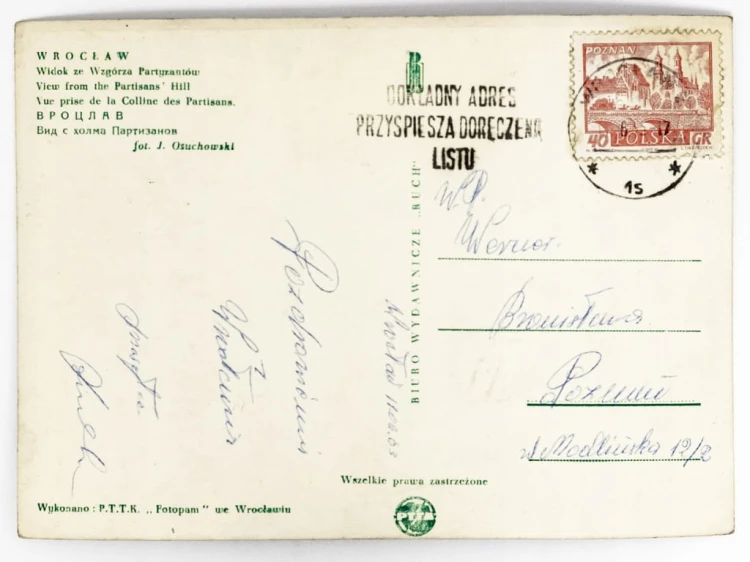 WROCŁAW
Widok ze Wzgórza Partyzantów
View from the Partisans' Hill
Vue prise de la Colline des Partisans.
ВРОЦЛАВ
Вид с холма Партизанов
fot. J. Ożuchowski
DOKŁADNY ADRES
PRZYSPIESZA DORĘCZENIA
LISTU
POZNAŃ
40 POLSKA GR
* 1s *
BIURO WYDAWNICZE „RUCH"
W.P.
Werner
Bronisława
Poznań
12/2
Pozdrowienia
Wrocław
Wszelkie prawa zastrzeżone
Wykonano: P.T.T.K. „Fotopam" we Wrocławiu
PTTK